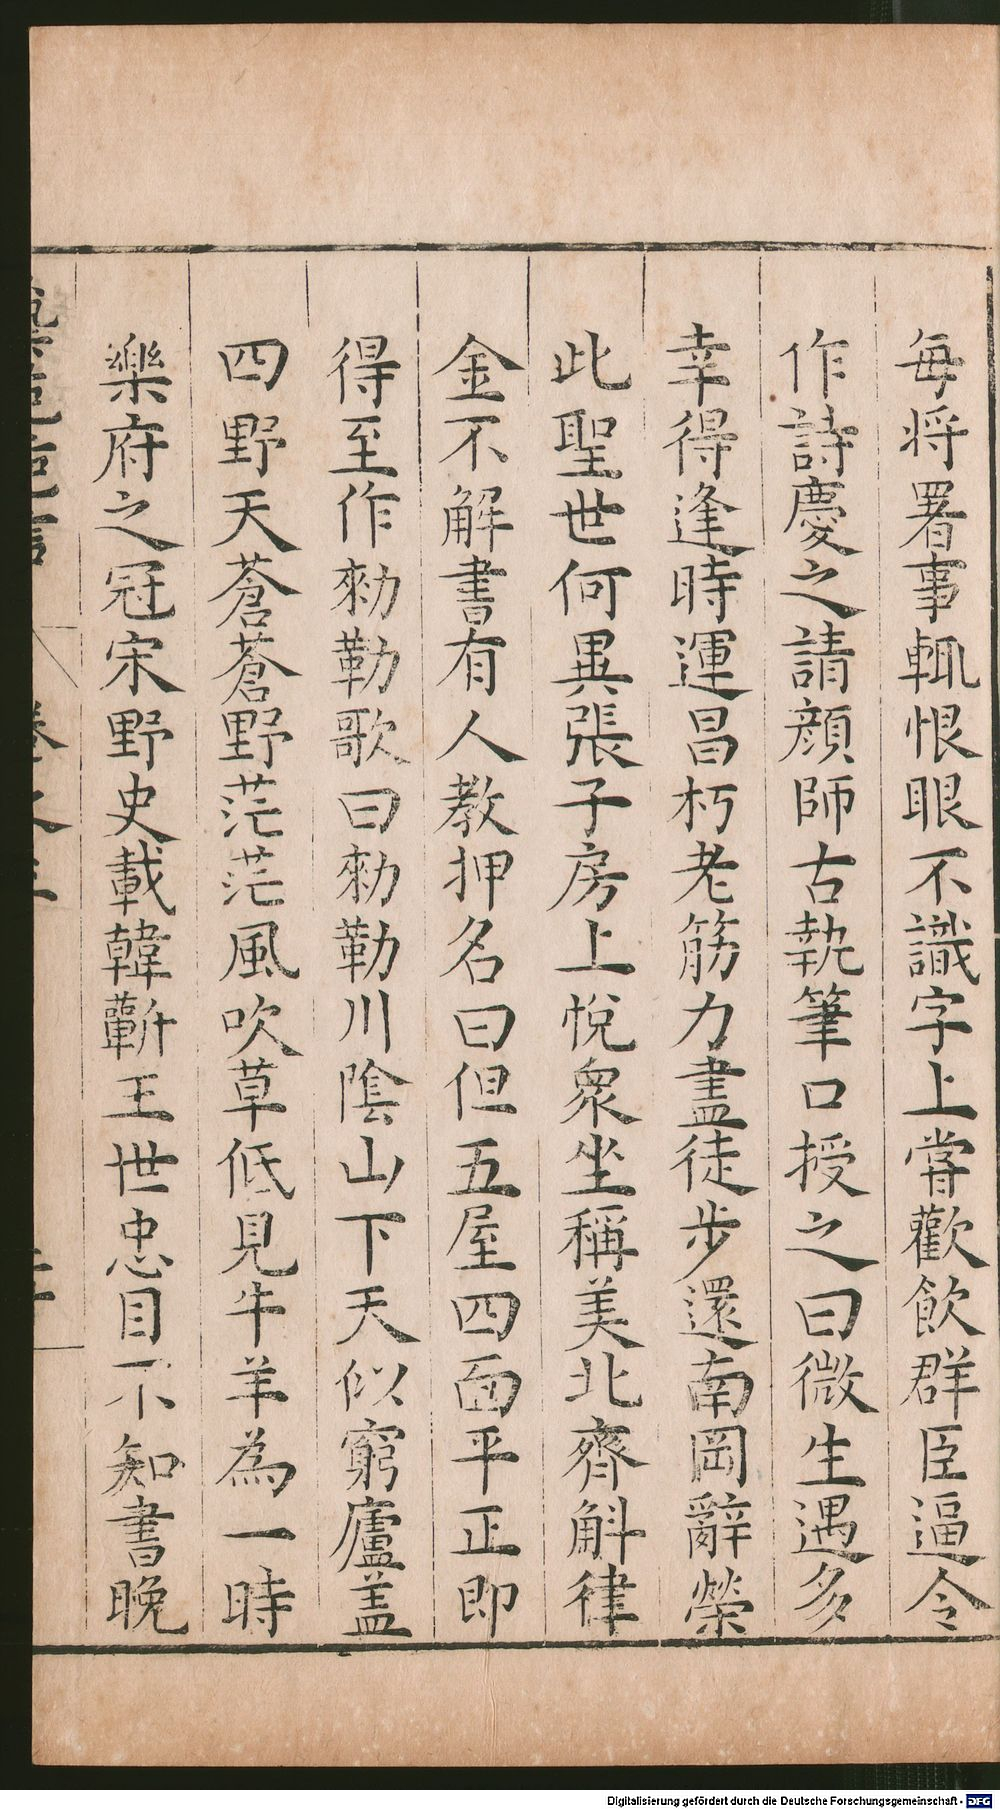 每将署事輒恨眼不識字上嘗歡飲群臣逼令
作詩慶之請顔師古執筆口授之曰微生遇多
幸得逢時運昌朽老筋力盡徒步還南岡辭榮
此聖世何異張子房上悅衆坐稱美北齊斛律
金不解書有人教押名曰但五屋四面平正即
得至作勑勒歌曰勑勒川陰山下天似窮廬盖
四野天蒼蒼野茫茫風吹草低見牛羊為一時
樂府之冠宋野史載韓蘄王世忠目不知書晚
卷之
Digitalisierung gefördert durch die Deutsche Forschungsgemeinschaft - DFG